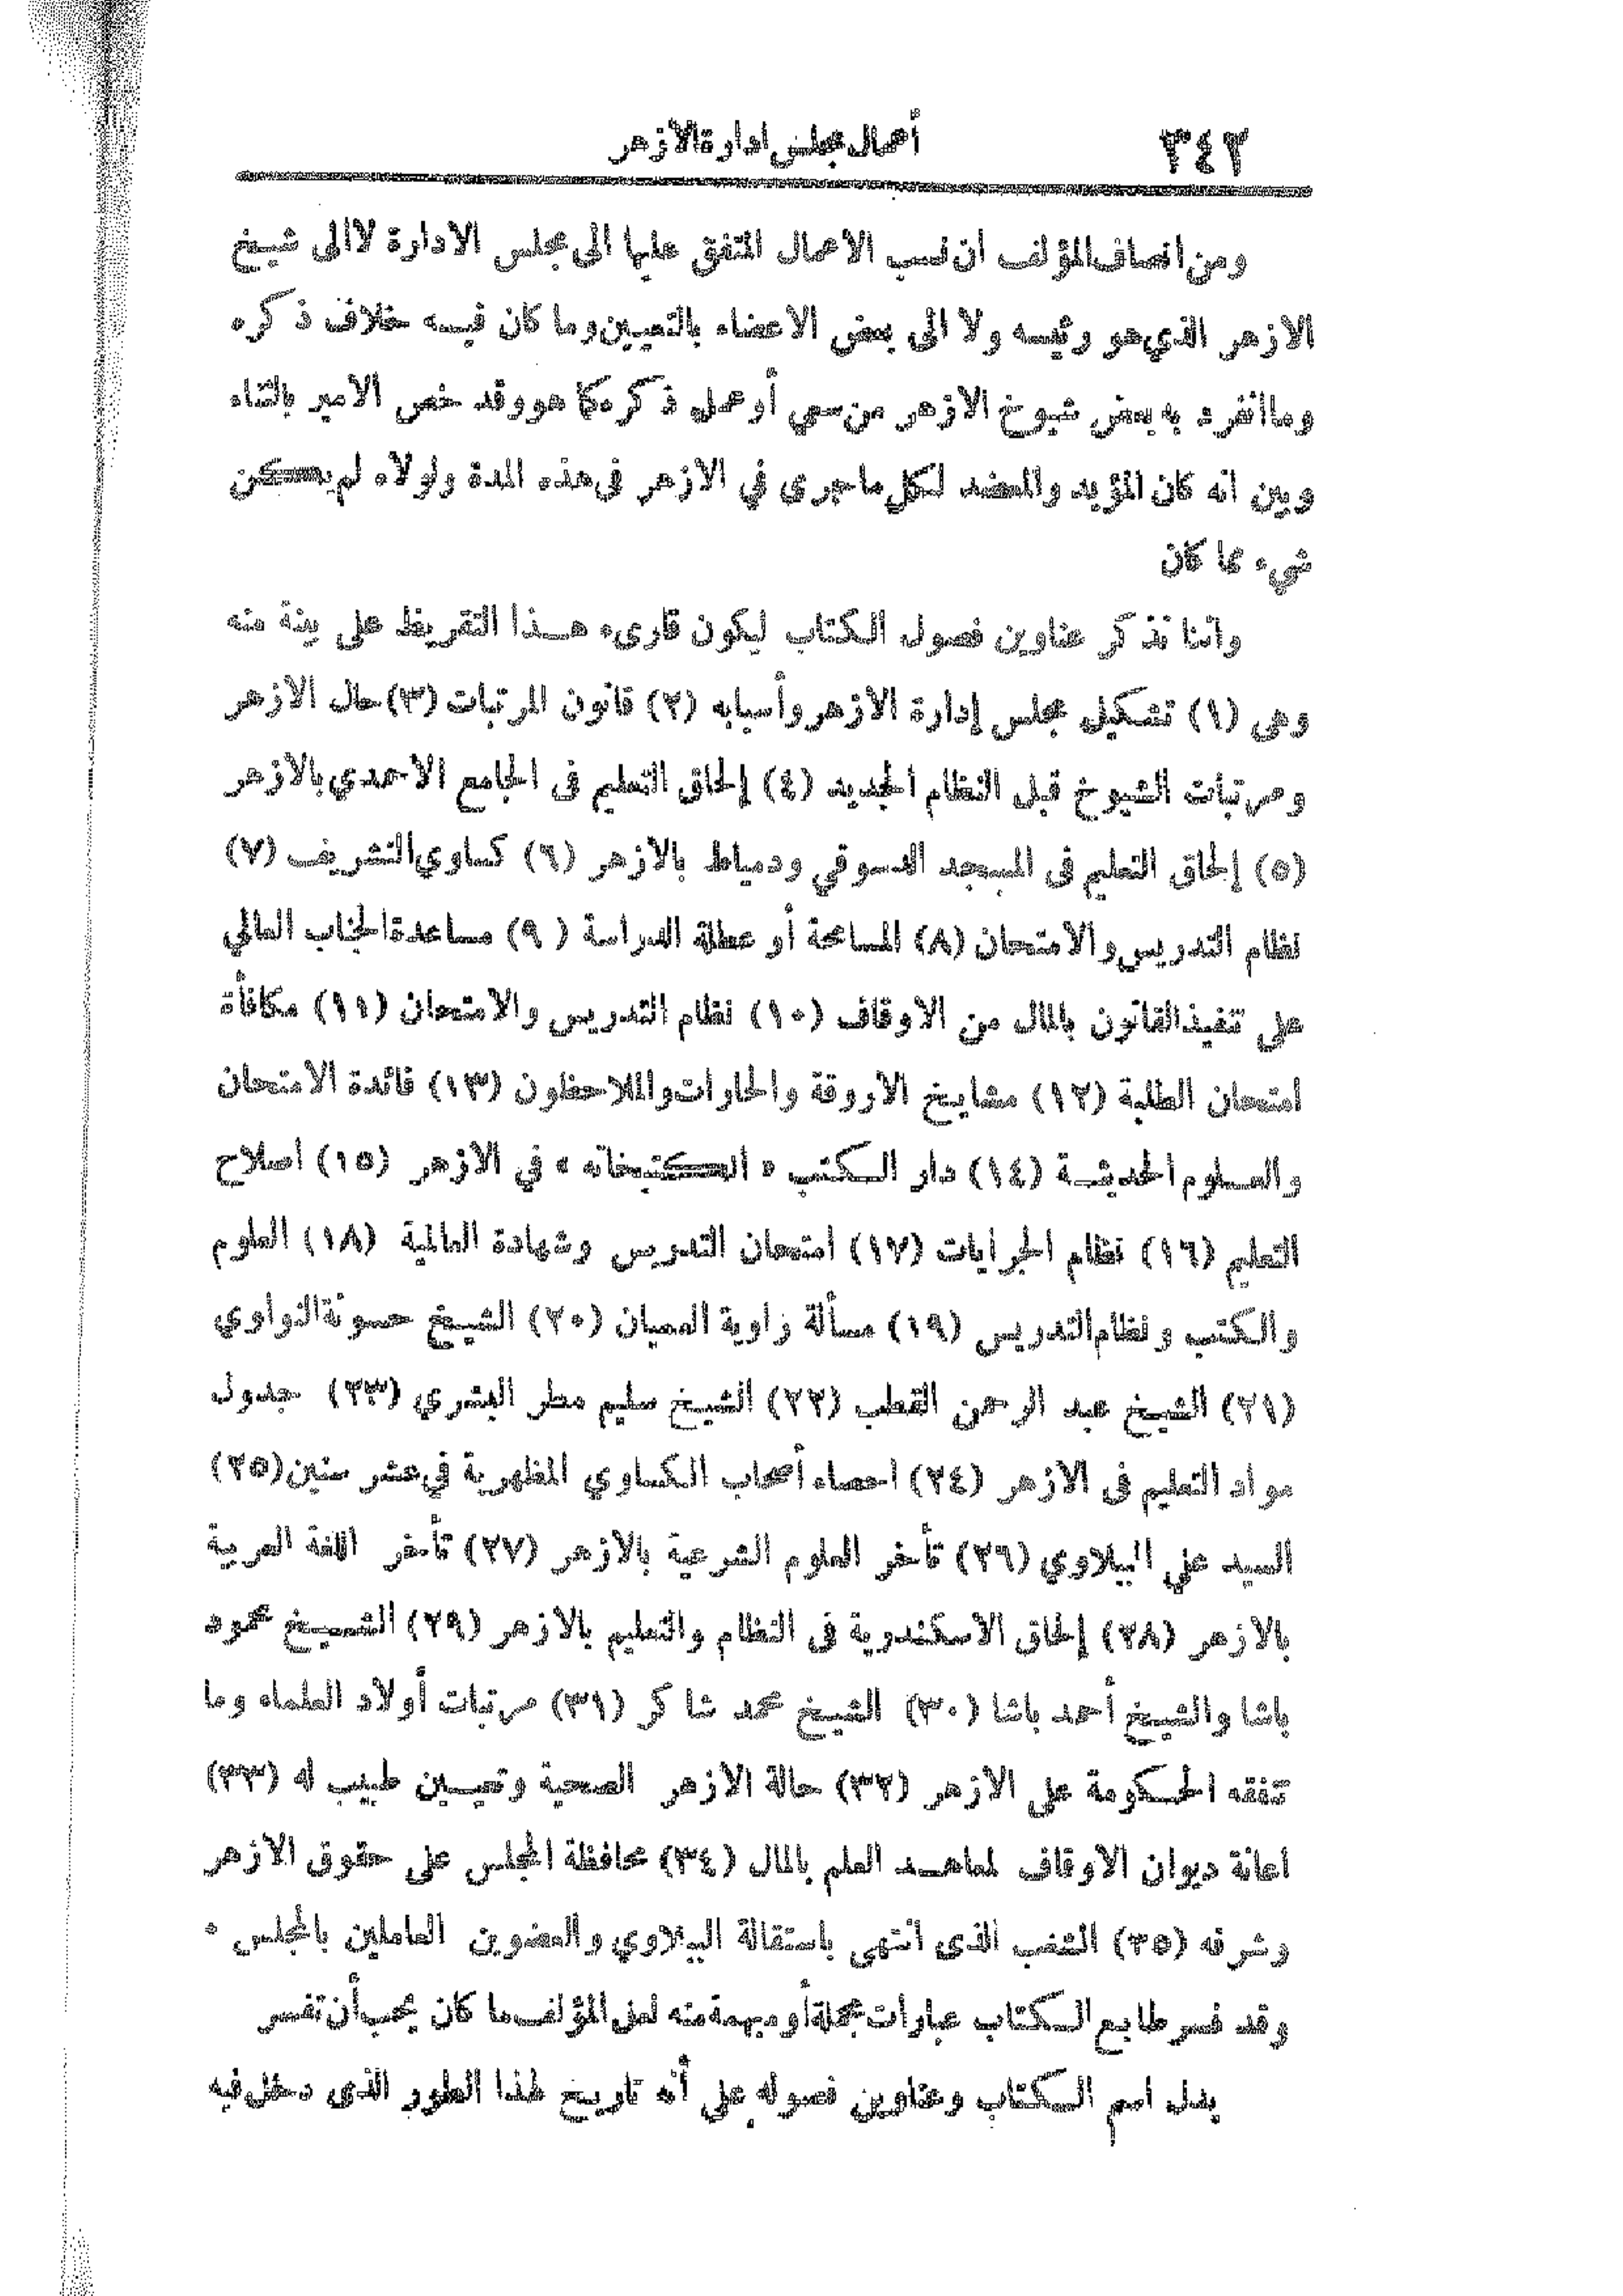 ٣٤٢
أعمال مجلس ادارة الازهر
ومن انصاف المؤلف ان نسب الاعمال المتفق عليها الى مجلس الادارة لا الى شيخ
الازهر الذي هو رئيسه ولا الى بعض الاعضاء بالتعيين وما كان فيه خلاف ذكره
وما انفرد به بعض شيوخ الازهر من سعي أو عمل ذكره كما هو وقد خص الامير بالثناء
وبين انه كان المؤيد والمعضد لكل ما جرى في الازهر في هذه المدة ولولاه لم يكن
شيء مما كان
واننا نذكر عناوين فصول الكتاب ليكون قارىء هذا التقريظ على بينة منه
وهى (١) تشكيل مجلس إدارة الازهر وأسبابه (٢) قانون المرتبات (٣) حال الازهر
ومرتبات الشيوخ قبل النظام الجديد (٤) إلحاق التعليم فى الجامع الاحمدي بالازهر
(٥) إلحاق التعليم فى المسجد الدسوقي ودمياط بالازهر (٦) كساوي التشريف (٧)
نظام التدريس والامتحان (٨) المسامحة أو عطلة الدراسة (٩) مساعدة الجناب العالي
على تنفيذ القانون بالمال من الاوقاف (١٠) نظام التدريس والامتحان (١١) مكافأة
امتحان الطلبة (١٢) مشايخ الاروقة والحارات والملاحظون (١٣) فائدة الامتحان
والعلوم الحديثة (١٤) دار الكتب « الكتبخانه » في الازهر (١٥) اصلاح
التعليم (١٦) نظام الجرايات (١٧) امتحان التدريس وشهادة العالمية (١٨) العلوم
والكتب ونظام التدريس (١٩) مسألة زاوية العميان (٢٠) الشيخ حسونة النواوي
(٢١) الشيخ عبد الرحمن القطب (٢٢) الشيخ سليم مطر البشري (٢٣) جدول
مواد التعليم فى الازهر (٢٤) احصاء أصحاب الكساوي المظهرية في عشر سنين (٢٥)
السيد علي الببلاوي (٢٦) تأخر العلوم الشرعية بالازهر (٢٧) تأخر اللغة العربية
بالازهر (٢٨) إلحاق الاسكندرية فى النظام والتعليم بالازهر (٢٩) الشيخ محمود
باشا والشيخ أحمد باشا (٣٠) الشيخ محمد شاكر (٣١) مرتبات أولاد العلماء وما
تنفقه الحكومة على الازهر (٣٢) حالة الازهر الصحية وتعيين طبيب له (٣٣)
اعانة ديوان الاوقاف لمعاهد العلم بالمال (٣٤) محافظة المجلس على حقوق الازهر
وشرفه (٣٥) الشغب الذى انتهى باستقالة الببلاوي والعضوين العاملين بالمجلس ٠
وقد فسر طابع الكتاب عبارات مجملة أو مبهمة منه لعل المؤلف ما كان يحب أن تفسر
يدل اسم الكتاب وعناوين فصوله على أنه تاريخ لهذا الطور الذى دخل فيه